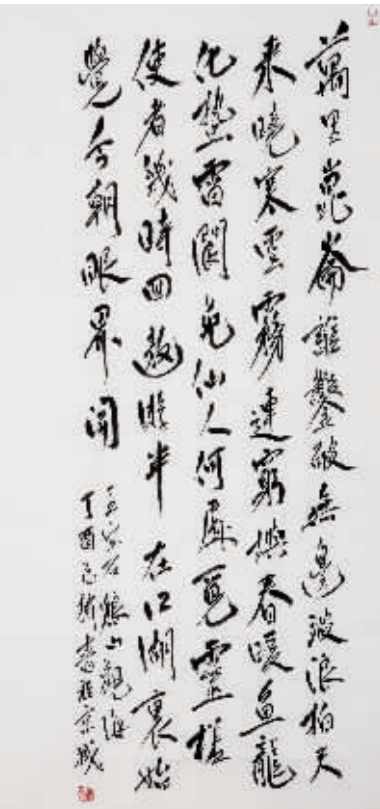 萬里崑崙誰鑿破無邊波浪拍天
來曉寒雲霧連窮嶼春暖魚龍
化蟄雷閬苑仙人何處覓靈槎
使者幾時回遨遊半在江湖裏始
覺今朝眼界開
山觀海
丁酉書於京城